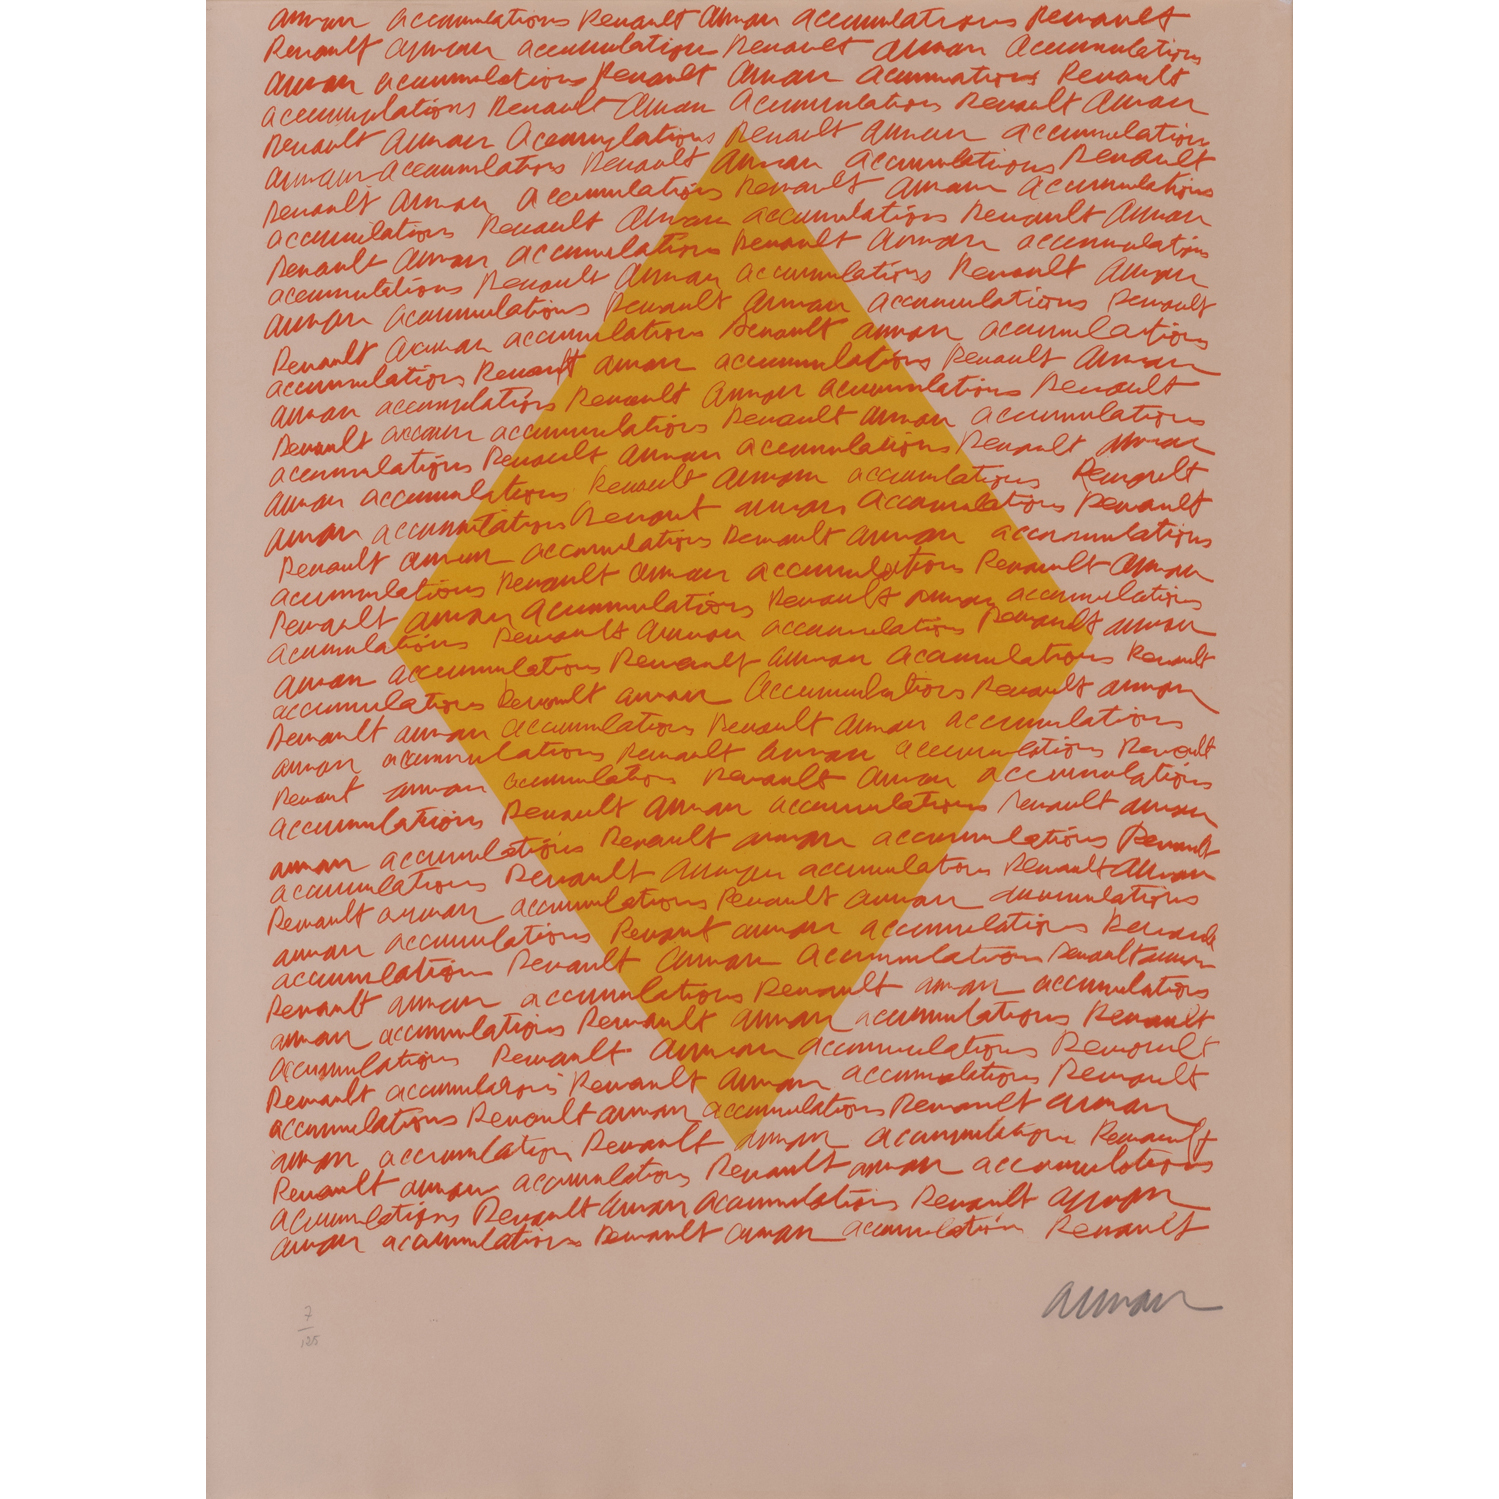 arman accumulations Renault arman accumulations Renault
Renault arman accumulation Renault arman accumulations
arman accumulations Renault arman accumulations Renault
accumulations Renault arman accumulations Renault arman
Renault arman accumulations Renault arman accumulations
arman accumulations Renault arman accumulations Renault
Renault arman accumulations Renault arman accumulations
accumulations Renault arman accumulations Renault arman
Renault arman accumulations Renault arman accumulations
accumulations Renault arman accumulations Renault arman
arman accumulations Renault arman accumulations Renault
Renault arman accumulations Renault arman accumulations
accumulations Renault arman accumulations Renault arman
arman accumulations Renault arman accumulations Renault
Renault accumulations Renault arman accumulations
accumulations Renault arman accumulations Renault arman
arman accumulations Renault arman accumulations Renault
arman accumulations Renault arman accumulations Renault
Renault arman accumulations Renault arman accumulations
accumulations Renault arman accumulations Renault arman
Renault arman accumulations Renault arman accumulations
accumulations Renault arman accumulations Renault arman
arman accumulations Renault arman accumulations Renault
accumulations Renault arman accumulations Renault arman
Renault arman accumulations Renault arman accumulations
arman accumulations Renault arman accumulations Renault
Renault arman accumulations Renault arman accumulations
accumulations Renault arman accumulations Renault arman
arman accumulations Renault arman accumulations Renault
accumulations Renault arman accumulations Renault arman
Renault arman accumulations Renault arman accumulations
arman accumulations Renault arman accumulations Renault
accumulations Renault arman accumulations Renault arman
Renault arman accumulations Renault arman accumulations
arman accumulations Renault arman accumulations Renault
accumulations Renault arman accumulations Renault
Renault accumulations Renault arman accumulations Renault
accumulations Renault arman accumulations Renault arman
arman accumulation Renault arman accumulation Renault
Renault arman accumulations Renault arman accumulations
accumulations Renault arman accumulations Renault arman
arman accumulations Renault arman accumulation Renault
arman
7
125